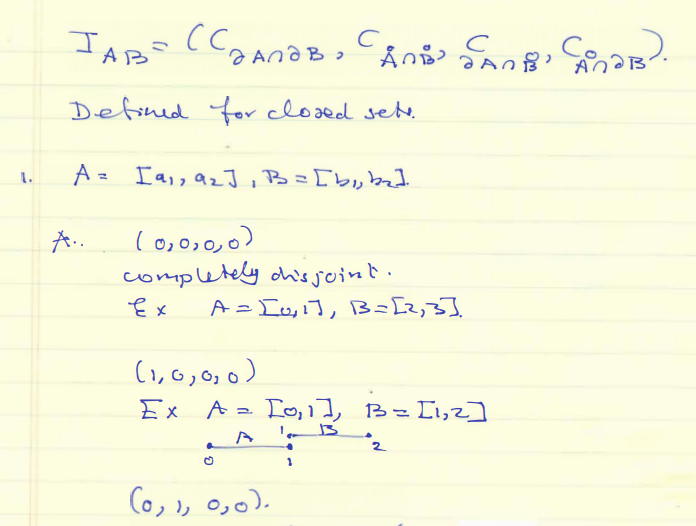 I_{AB} = (C_{∂A∩∂B}, C_{Å∩B̊}, C_{∂A∩B̊}, C_{Å∩∂B}).
Defined for closed sets.
1. A = [a₁, a₂], B = [b₁, b₂].
A.. (0,0,0,0)
completely disjoint.
Ex A = [0,1], B = [2,3].
(1,0,0,0)
Ex A = [0,1], B = [1,2]
A 1 B
0 1 2
(0,1,0,0).